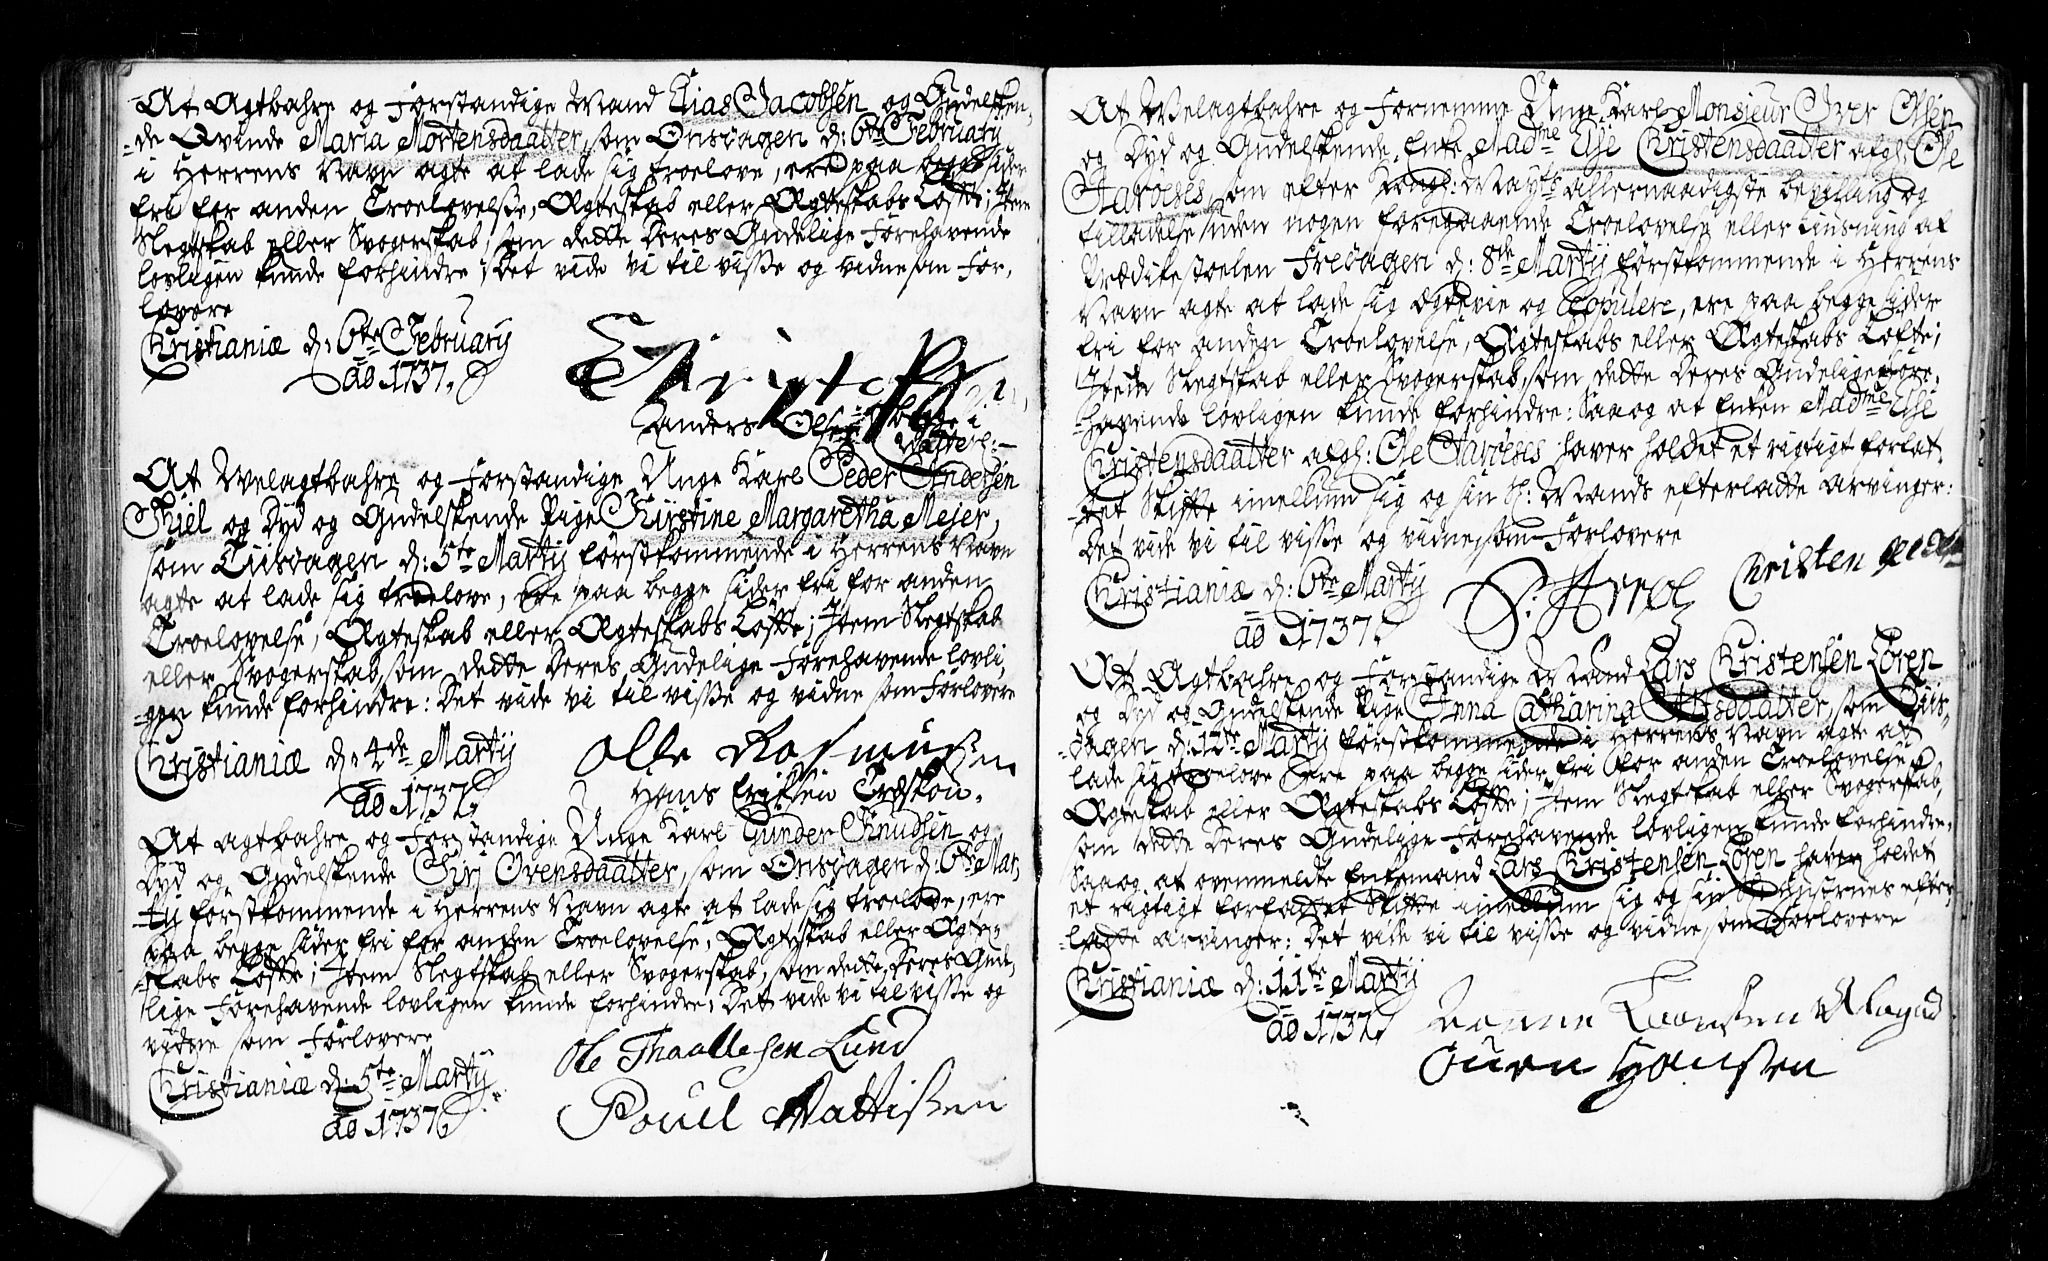 At Agtbahre og Forstandige Mand Elias Jacobsen og Gudelsken„
„de Qvinde Maria Mortensdaatter, som Onsdagen d: 6te February
i Herrens Navn agte at lade sig troelove, ere paa begge sider
fri for anden Troelovelse, Ægteskab eller Ægteskabs Løfte; Item
Slegtskab eller Svogerskab, som dette Deres Gudelige Forehavende
lovligen kunde forhindre; Det vide vi til visse og vidne som For„
lovere
Christianiæ d: 6te February
aō 1737.
Anders Olsen
At Welagtbahre og Forstandige Unge Karl Peder Andersen
Thiel og Dyd og Gudelskende Pige Kirstine Margaretha Mejer,
som Tiisdagen d: 5te Martij førstkommende i Herrens Navn
agte at lade sig troelove, ere paa begge sider fri for anden
Troelovelse, Ægteskab eller Ægteskabs Løfte; Item Slegtskab
eller Svogerskab, som dette Deres Gudelige Forehavende lovli„
„gen kunde forhindre: Det vide vi til visse og vidne som Forlovere
Christianiæ d: 4de Martij
aō 1737.
Olle Rasmussen
Hans Erichsen
At agtbahre og Forstandige Unge Karl Gunder Knudsen og
Dyd og Gudelskende Siri Ovensdaatter, som Onsdagen d: 6te Mar„
„tij førstkommende i Herrens Navn agte at lade sig troelove, ere
paa begge sider fri for anden Troelovelse, Ægteskab eller Ægte„
„skabs Løfte; Item Slegtskab eller Svogerskab, som dette Deres Gude„
„lige Forehavende lovligen kunde forhindre; Det vide vi til visse og
vidne som Forlovere
Christianiæ d: 5te Martij
aō 1737
Ole Thaallesen Lund
Povel Mattissen
At Welagtbahre og Fornemme Unge Karl Monsieur Iver Olsen
og Dyd og Gudelskende Enke Madme Else Christensdaatter afg: Ole
som efter Kongl: Mayts allernaadigste bevilling og
tilladelse uden nogen foregaaende Troelovelse eller Liusning af
Prædikestoelen Fredagen d: 8de Martij førstkommende i Herrens
Navn agte at lade sig ægtevie og Copulere, ere paa begge sider
fri for anden Troelovelse, Ægteskabs eller Ægteskabs Løfte;
Item Slegtskab eller Svogerskab, som dette Deres Gudelige Fore„
„havende lovligen kunde forhindre: Saa og at Enken Madme Else
Christensdaatter afg: Ole haver holdet et rigtigt forfat„
„tet Skifte imellum sig og sin Sl: Mands efterladte arvinger:
Det vide vi til visse og vidne, som Forlovere
Christianiæ d: 6te Martij
aō 1737.
Christen
At Agtbahre og Forstandige Mand Lars Christensen Loren
og Dyd og Gudelskende Pige Anna Catharina som Tiis„
„dagen d: 12te Martij førstkommende i Herrens Navn agte at
lade sig troelove ere paa begge sider fri for anden Troelovelse,
Ægteskab eller Ægteskabs Løfte; Item Slegtskab eller Svogerskab,
som dette Deres Gudelige Forehavende lovligen kunde forhindre,
Saa og at ovenmeldte Enkemand Lars Christensen Loren haver holdet
et rigtigt forfattet Skifte imellum sig og sin Sl: Hustrues efter„
„ladte arvinger: Det vide vi til visse og vidne, som Forlovere
Christianiæ d: 11te Martij
aō 1737.
Hanssen